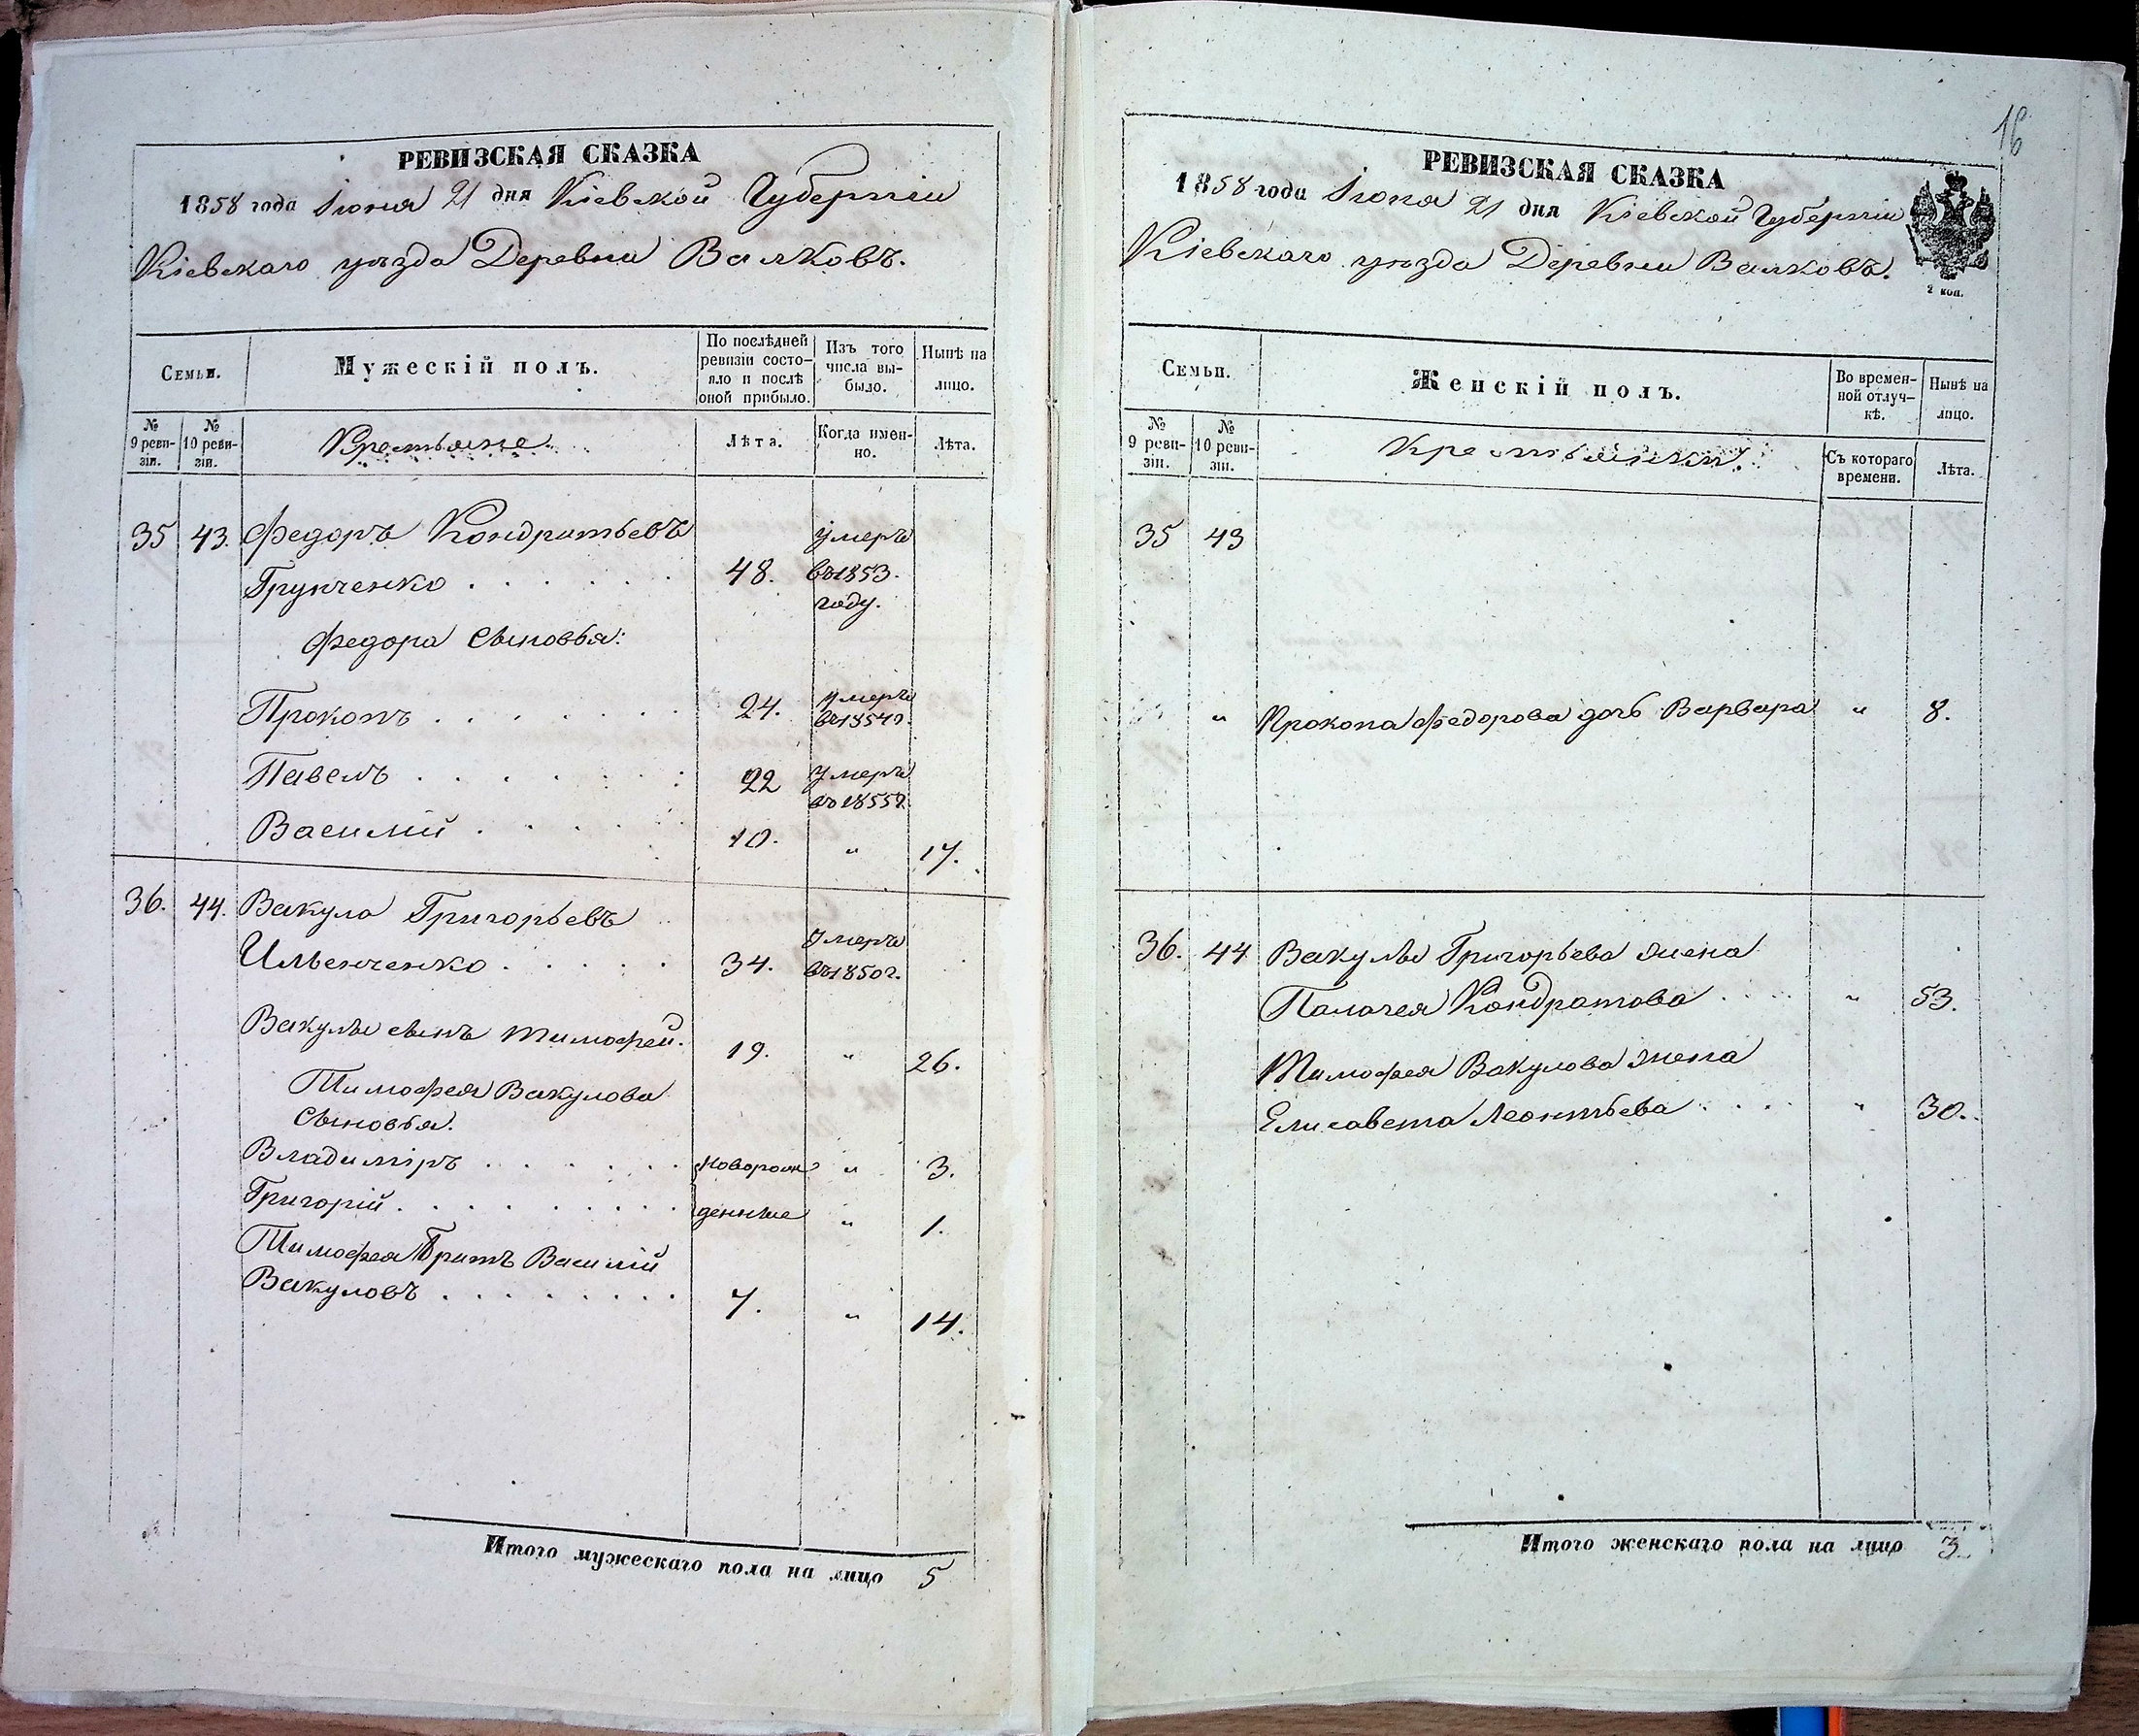 РЕВИЗСКАЯ СКАЗКА
1858 года Іюня 21 дня Кіевской Губерніи
Кіевскаго уѣзда Деревни Валковъ.
Семьи.
Мужескій полъ.
По послѣдней ревизіи состояло и послѣ оной прибыло.
Изъ того числа выбыло.
Нынѣ на лицо.
№ 9 ревизіи.
№ 10 ревизіи.
Крестьяне.
Лѣта.
Когда именно.
Лѣта.
35 43. Федоръ Кондратьевъ умеръ
Грунченко 48. въ 1853.
году.
Федора Сыновья:
Прокопъ 24. умеръ въ 1854 г.
Павелъ 22 умеръ въ 1855 г.
Василій 10. " 17.
36. 44. Вакула Григорьевъ умеръ
Ильенченко 34. въ 1850 г.
Вакулы сынъ Тимофей. 19. " 26.
Тимофея Вакулова
Сыновья.
Владиміръ новорож " 3.
Григорій денные " 1.
Тимофея Братъ Василій
Вакуловъ 7. " 14.
Итого мужескаго пола на лицо 5
16
РЕВИЗСКАЯ СКАЗКА
1858 года Іюня 21 дня Кіевской Губерніи
Кіевскаго уѣзда Деревни Валковъ.
2 коп.
Семьи.
Женскій полъ.
Во временной отлучкѣ.
Нынѣ на лицо.
№ 9 ревизіи.
№ 10 ревизіи.
Крестьянки.
Съ котораго времени.
Лѣта.
35 43
" Прокопа Федорова дочь Варвара " 8.
36. 44 Вакулы Григорьева жена
Палагея Кондратова " 53.
Тимофея Вакулова жена
Елисавета Леонтьева " 30.
Итого женскаго пола на лицо 3.